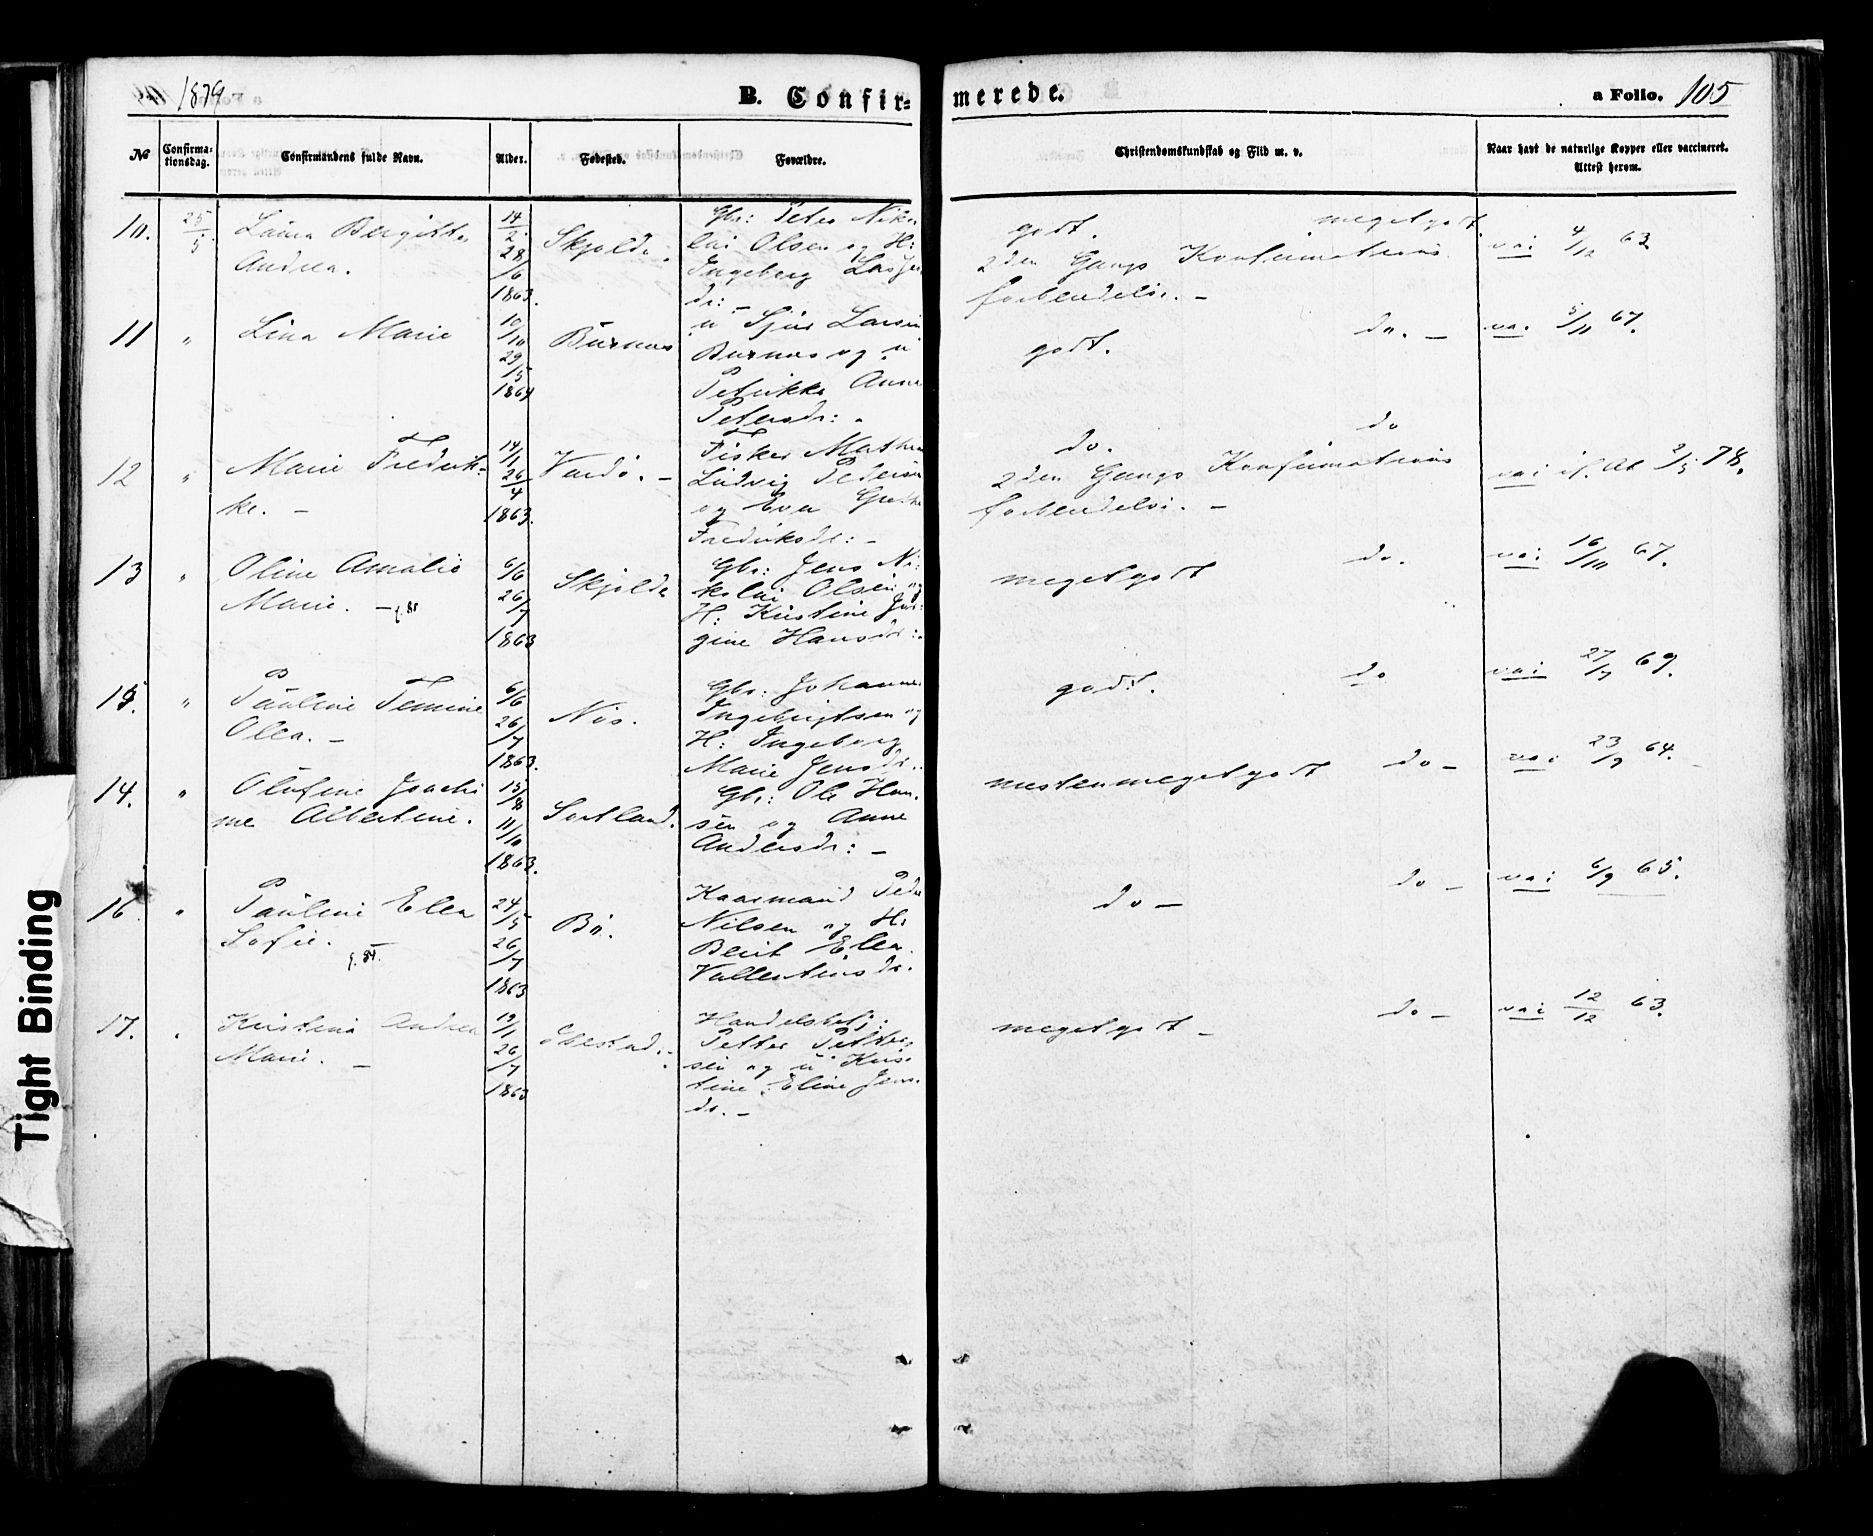 1879
B. Confir=
merede.
a Folio. 105
No
Confirma-
tionsdag.
Confirmandens fulde Navn.
Alder.
Fødested.
Forældre.
Christendomskundskab og Flid m. v.
Naar havt de naturlige Kopper eller vaccineret.
Attest herom.
10. 25/5 Laura Bergitta
Andrea.
14/2 28/6 1863.
Skjolde.
Gbr: Peter Niko
lai Olsen og H:
Ingeberg
dr: –
godt. meget godt.
2den Gangs Konfirmations
forberedelse. –
va: 4/12 63
11 " Lina Marie
10/10 29/5 1864
Burnes
u Sjur Larsen
Burnes og u
Petrikke Anne
Petersdr: –
godt. do. –
va. 5/11 67.
12 " Marie Fredrik-
ke. –
14/1 26/4 1863.
Vardö. –
Fisker Mathias
Ludvig Pedersen
og Ewa Grethe
Fredriksdr: –
do. do
2den Gangs Konfirmations
forberedelse. –
va: if. At 3/5 78.
13 " Oline Amalie
Marie. –
6/6 26/7 1863
Skjolde
Gbr: Jens Ni-
kolai Olsen og
H: Kirstine Jør-
gine Hansdr:
meget godt do.
va: 16/10 67.
15. " Pauline Temine
Olea. –
6/6 26/7 1863.
Nøs.
Gbr: Johannes
Ingebrigtsen og
H: Ingeborg
Marie Jensdr.
godt. do
va: 27/7 69.
14. " Olufine Joachi
me Albertine.
15/8 11/10 1863.
Sortland.
Gbr: Ole Han-
sen og Anne
Andersdr: –
næsten meget godt do –
va: 23/9 64.
16 " Pauline Elea
Sofie.
24/5 26/7 1863
Bö.
Kaarmand Peder
Nilsen og H:
Berit Elea
Vallentinsdr.
do – do –
va: 6/9 65.
17. " Kristine Andrea
Marie. –
19/1 26/7 1863
Handelsbetj:
Petter Petter-
sen og u Kris-
tine Eline Jens-
dr. –
meget godt – do –
va: 12/12 63.
Tight Binding